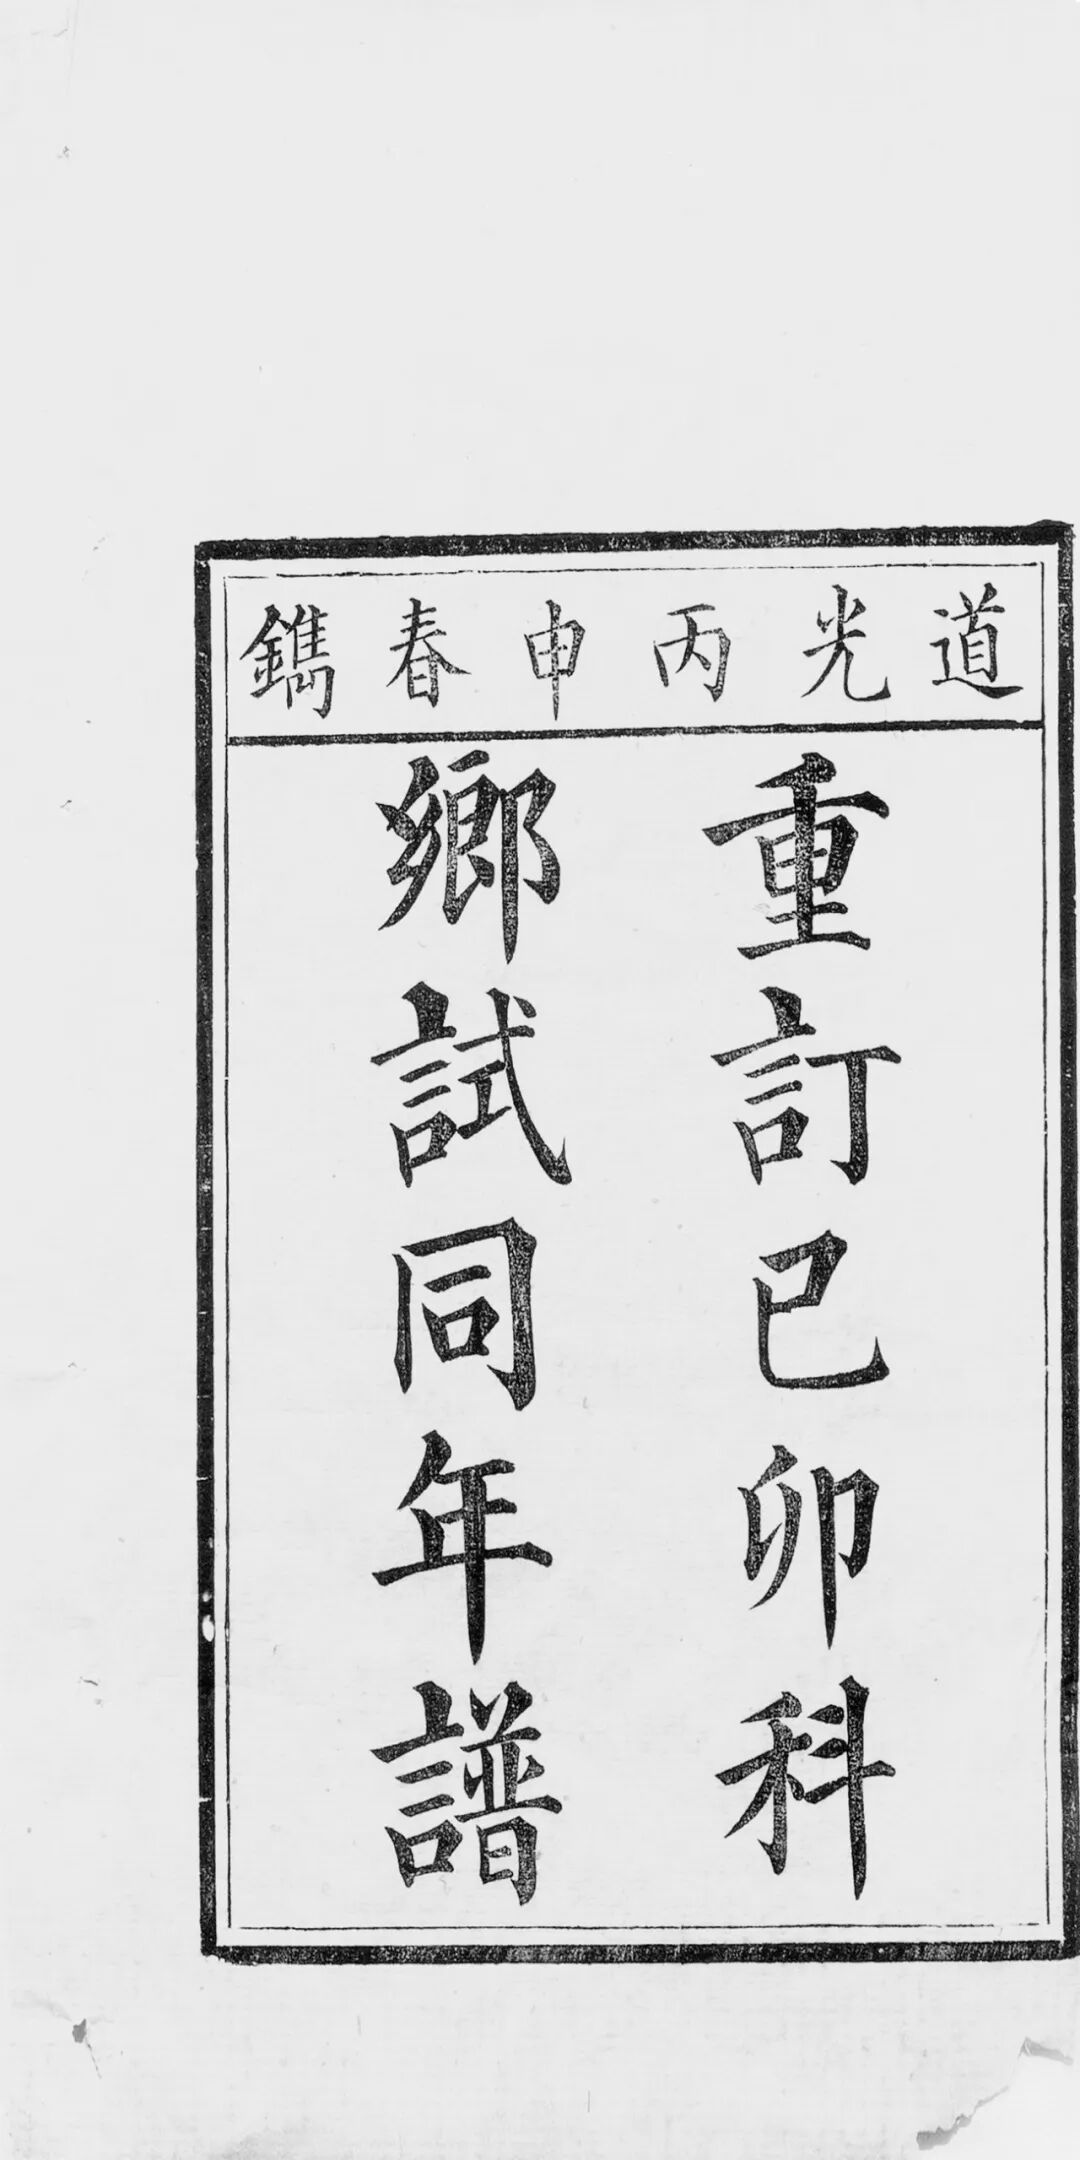 道光丙申春鐫
重訂己卯科
鄉試同年譜